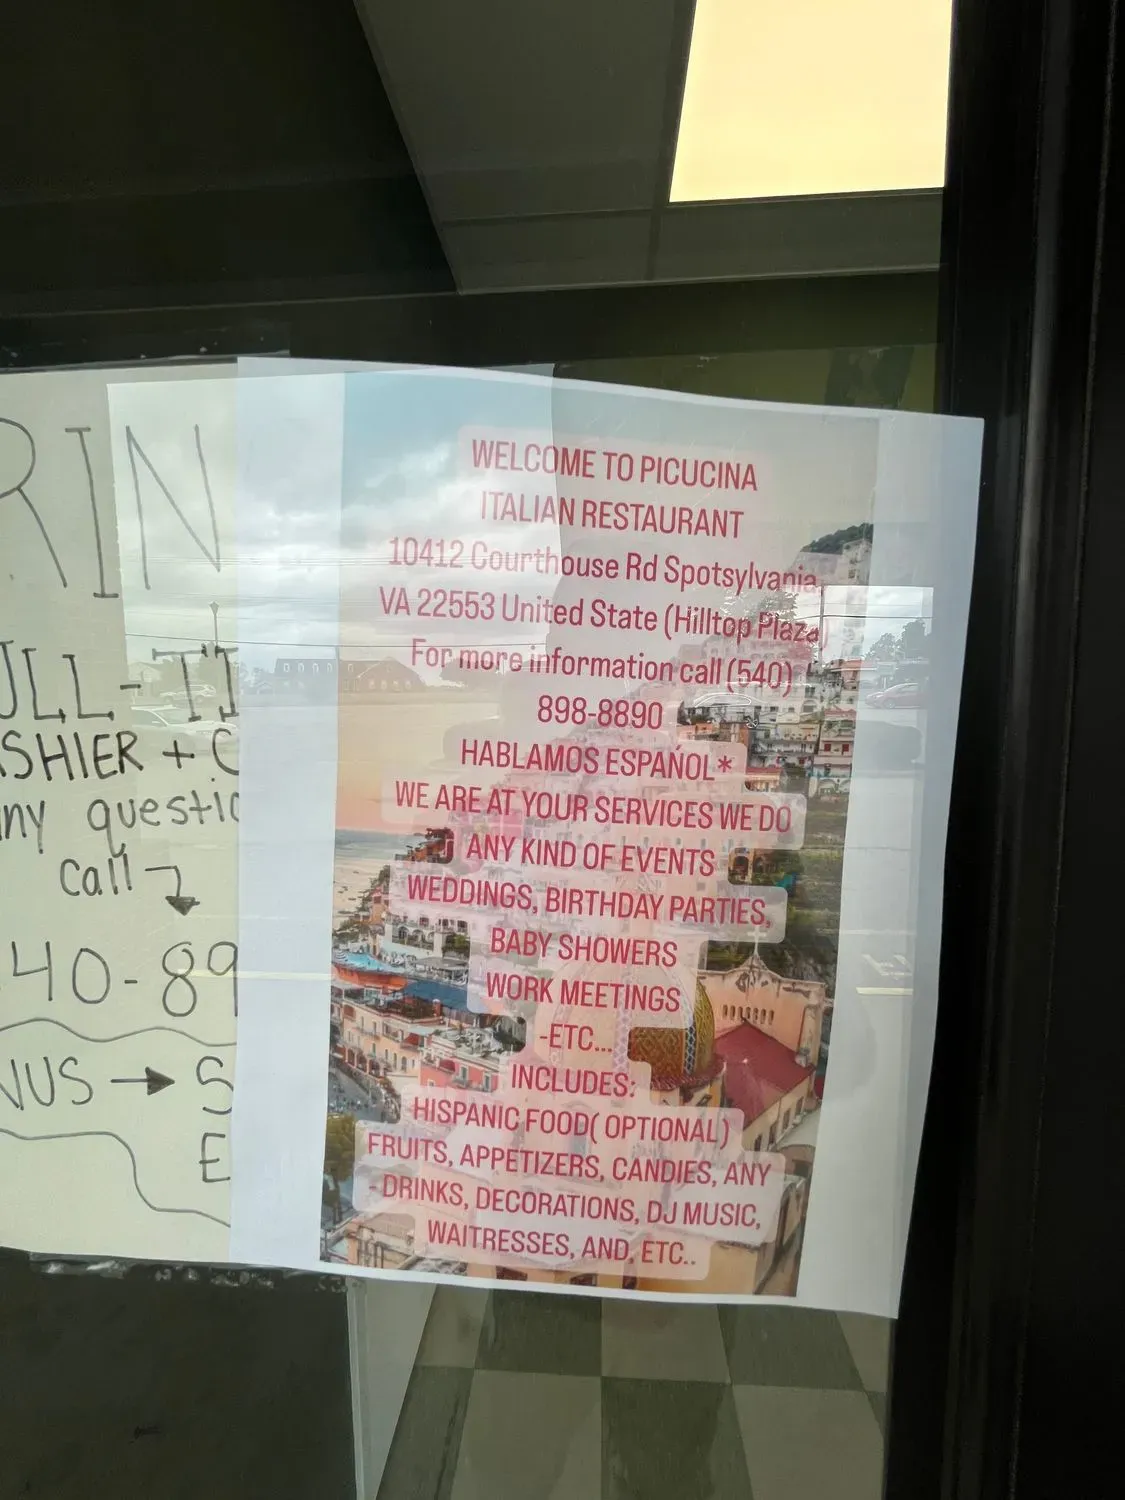 RIN
ULL-TI
SHIER + C
ny questio
Call
40-89
NUS → S
E
WELCOME TO PICUCINA
ITALIAN RESTAURANT
10412 Courthouse Rd Spotsylvania,
VA 22553 United State (Hilltop Plaza)
For more information call (540)
898-8890
HABLAMOS ESPAŃOL*
WE ARE AT YOUR SERVICES WE DO
ANY KIND OF EVENTS
WEDDINGS, BIRTHDAY PARTIES,
BABY SHOWERS
WORK MEETINGS
-ETC...
INCLUDES:
HISPANIC FOOD( OPTIONAL)
FRUITS, APPETIZERS, CANDIES, ANY
-DRINKS, DECORATIONS, DJ MUSIC,
WAITRESSES, AND, ETC..